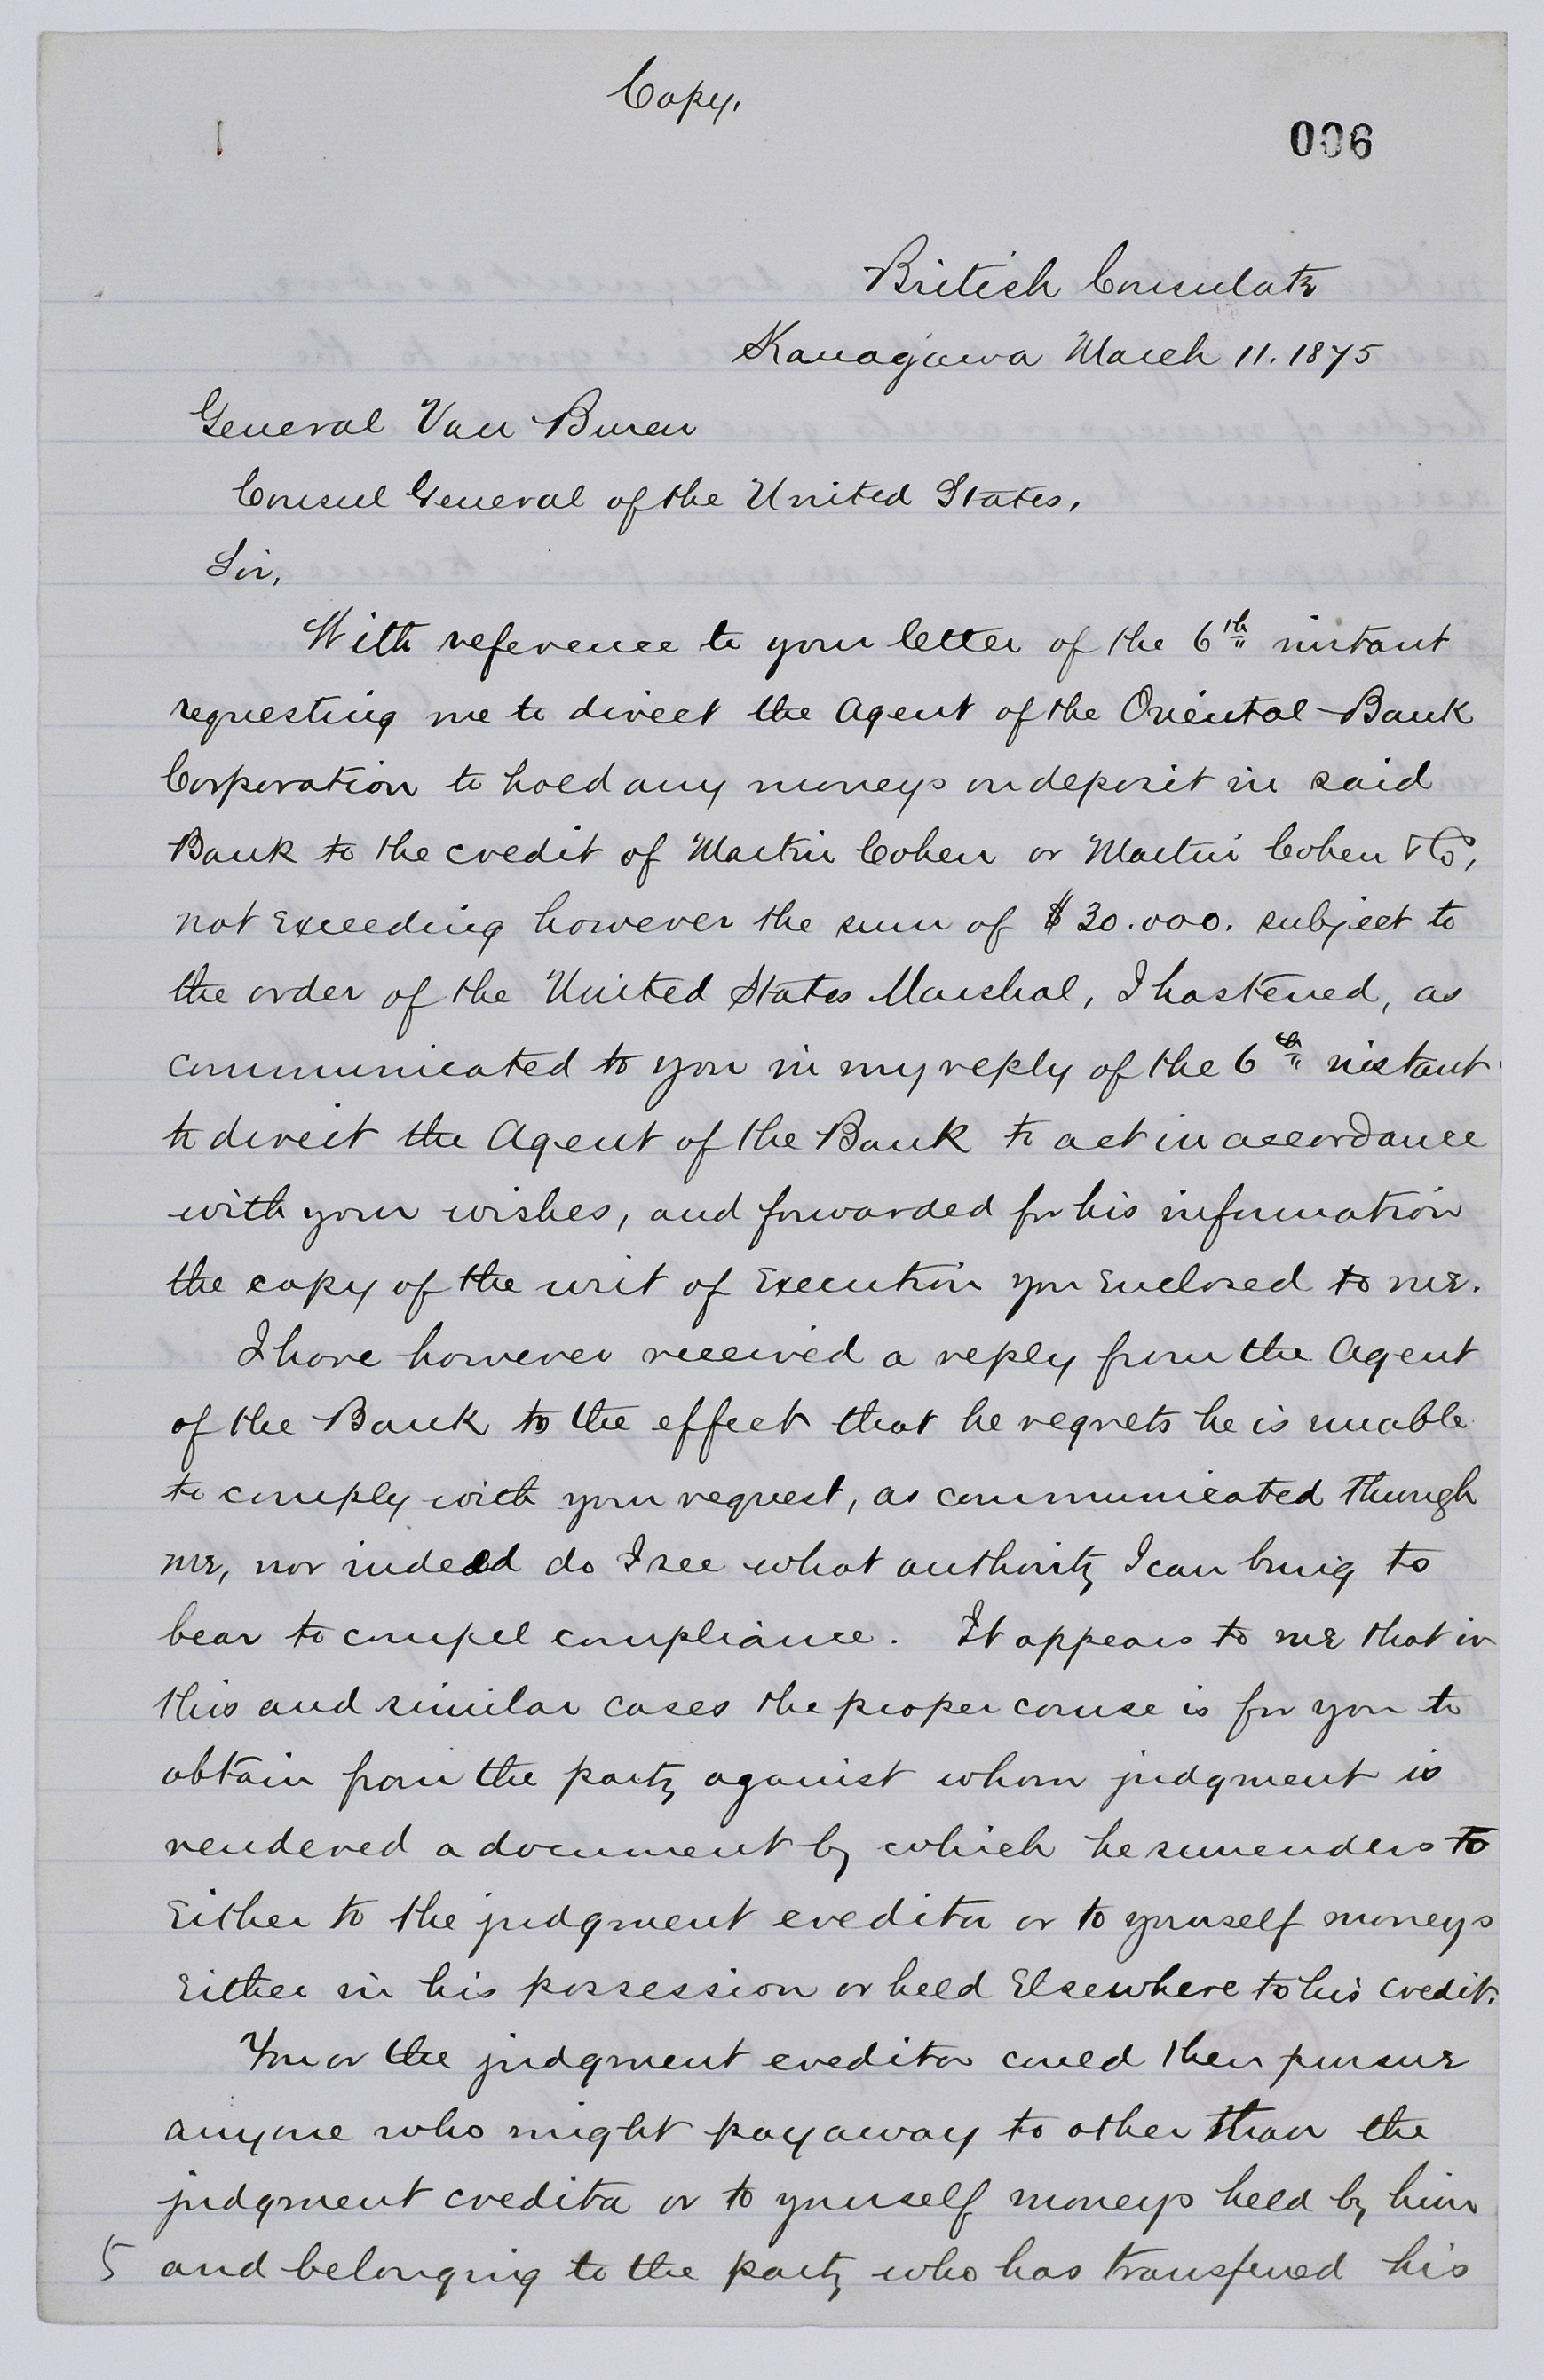 Copy.
006
British Consulate
Kanagawa March 11. 1875
General Van Buren
Consul General of the United States,
Sir,
With reference to your letter of the 6th instant
requesting me to direct the Agent of the Oriental Bank
Corporation to hold any moneys on deposit in said
Bank to the credit of Martin Cohen or Martin Cohen & Co,
not exceeding however the sum of $30.000. subject to
the order of the United States Marshal, I hastened, as
communicated to you in my reply of the 6th instant
to direct the Agent of the Bank to act in accordance
with your wishes, and forwarded for his information
the copy of the writ of Execution you Enclosed to me.
I have however received a reply from the Agent
of the Bank to the effect that he regrets he is unable
to comply with your request, as communicated through
me, nor indeed do I see what authority I can bring to
bear to compel compliance. It appears to me that in
this and similar cases the proper course is for you to
obtain from the party against whom judgment is
rendered a document by which he surrenders to
Either to the judgment creditor or to yourself moneys
Either in his possession or held Elsewhere to his credit.
You or the judgment creditor could then pursue
anyone who might pay away to other than the
judgment creditor or to yourself moneys held by him
5 and belonging to the party who has transferred his